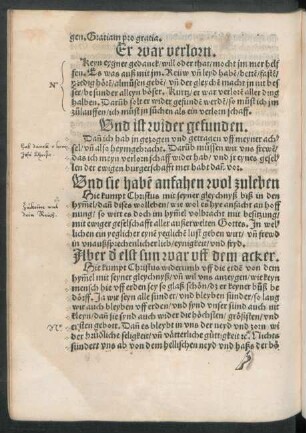 gen. Gratiam pro gratia.
Er war verlorn.
Keyn eygner gedanck/ will oder that/ mocht jm mer helf
fen. Es was auß mit jm. Reüw vñ leyd habẽ/ bettẽ/ fastẽ/
besser/ sunder alleyn böser. Kurtz/ er war verlorẽ aller ding
halben. Darüb solt er wider gefundẽ werdẽ/ so müst ich jm
zulauffen/ ich müst jn sůchen vnd finden.
Vnd ist wider gefunden.
Dañ ich hab jn getzogen vnd getragen vff meyner
das ich meyn verlorn schaff wider hab/ vnd jr eyns gesel/
len der ewigen burgerschafft mer habt dañ. vor.
Vnd sie habẽ anfahen wol zuleben
Hie kumpt Christus mit seyner gleichnyß biß in den
hymel/ dañ disses wolleben/ wie wol es hye anfacht in hoff
nung/ so wirt es doch im hymel volbracht mit besitzung/
mit ewiger gesellschafft aller außerwelten Gottes. In wel
lichen eyn yeglicher eyns yeglichẽ lust gebern wirt/ vñ freud
in vnaußsprechenlicher lieb/ eynigkeit/ vnd fryd.
Aber d elst sun war vff dem acker.
Hie kumpt Christus widerumb vff die erdẽ von dem
hymel mit seyner gleychnyß/ vñ wil vns anzeygen/ wie hoch
mensch hie vff erden so gar schön sey/ dz er keyner bůß be
dörff. Ja wir seyn alle sünder/ vnd bleyben sünder/ so lang
wir auch bleyben vff erden/ vnd synd vnser sünd auch nit
kleyn/ dañ sie synd auch wider die höchsten/ grösisten/ vnd
ersten gebott. Dañ es bleybt in vns der neyd vnd zorn wi
der brüderliche seligkeit/ vñ vätterliche güttigkeit ꝛc. Nichts
sündert vns ab von dem hellischen neyd vnd haß der bö